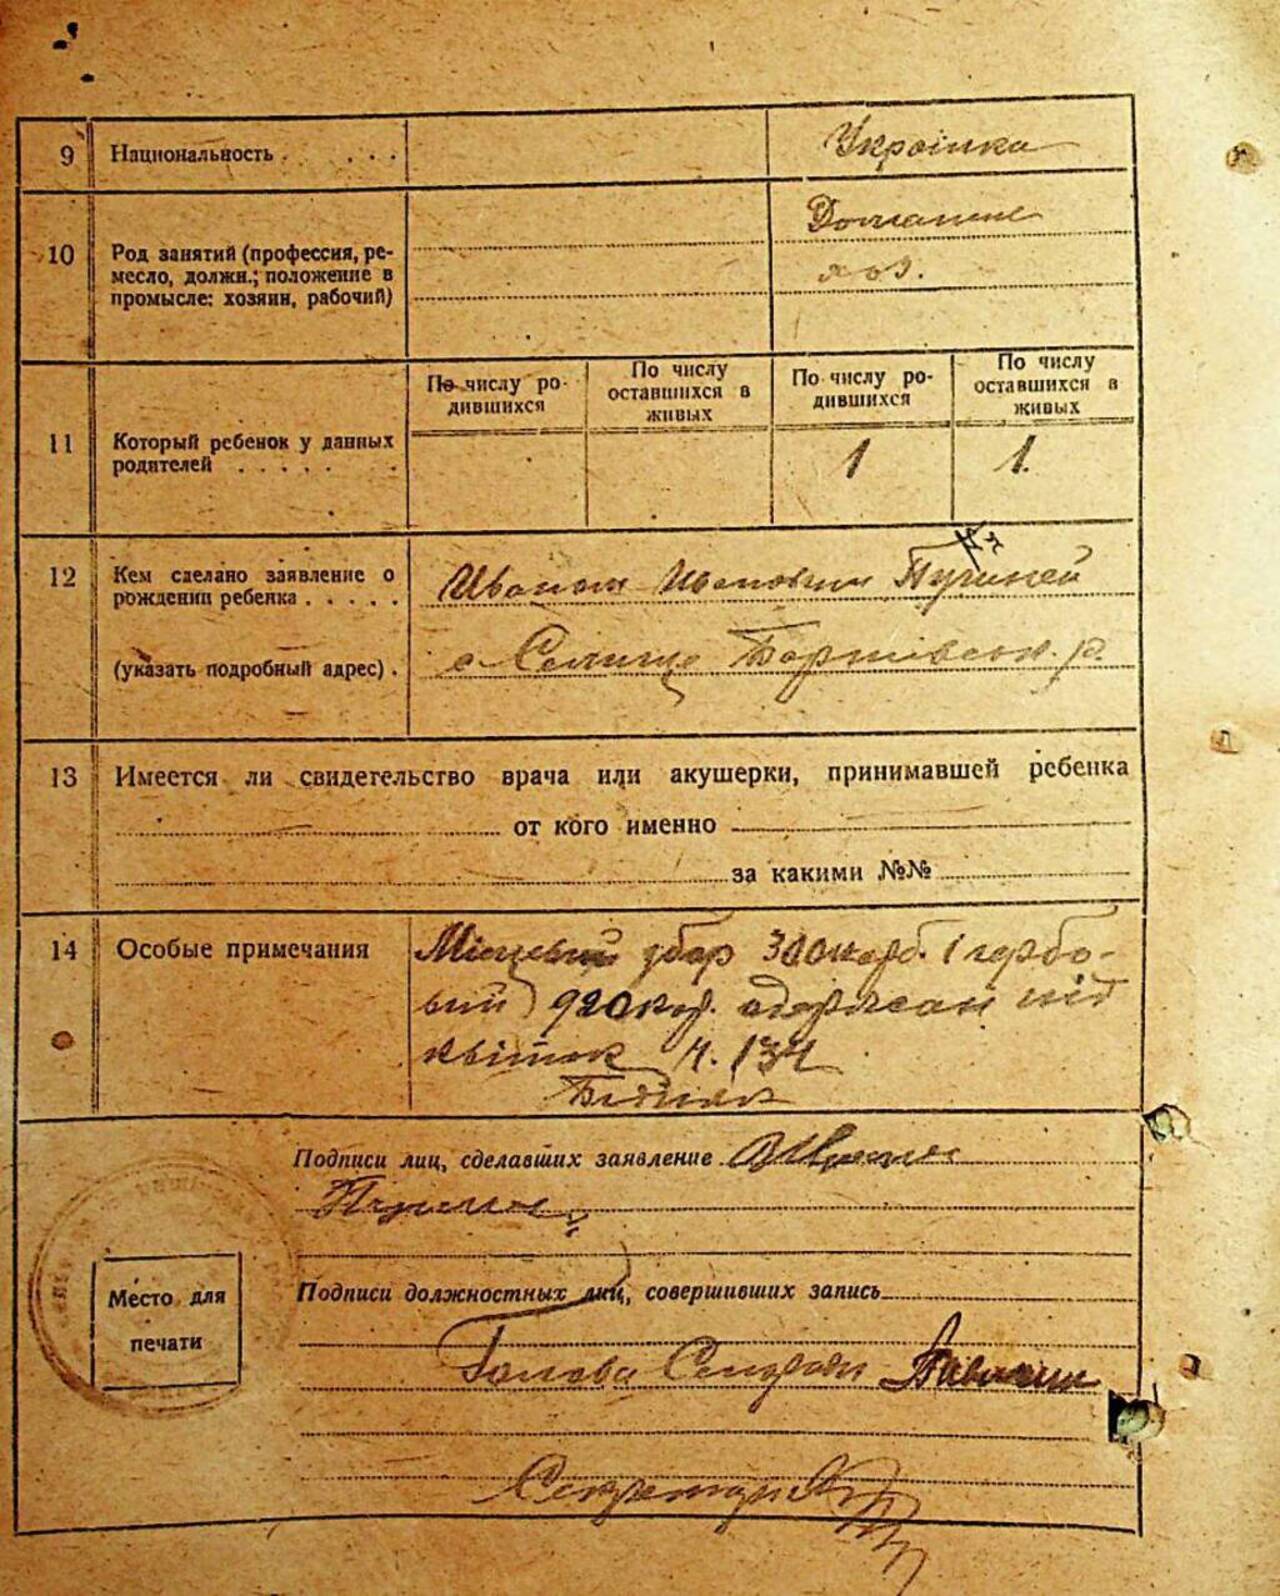 9 Национальность . . . . Українка
10 Род занятий (профессия, ре-
месло, должн.; положение в
промысле: хозяин, рабочий)
Домашнє
хоз.
11 Который ребенок у данных
родителей . . . . . .
По числу ро-
дившихся
По числу
оставшихся в
живых
По числу ро-
дившихся
По числу
оставшихся в
живых
1 1
12 Кем сделано заявление о
рождении ребенка . . . . .
(указать подробный адрес) .
Иваном Ивановичем
с Селище р.
13 Имеется ли свидетельство врача или акушерки, принимавшей ребенка
от кого именно
за какими №№
14 Особые примечания
Місцевий збор 300 карб. і гербо-
вий 920 кар. одержан під
квіток Н. 134
Подписи лиц, сделавших заявление
Подписи должностных лиц, совершивших запись
Место для
печати
Голова Сельради
Секретарь